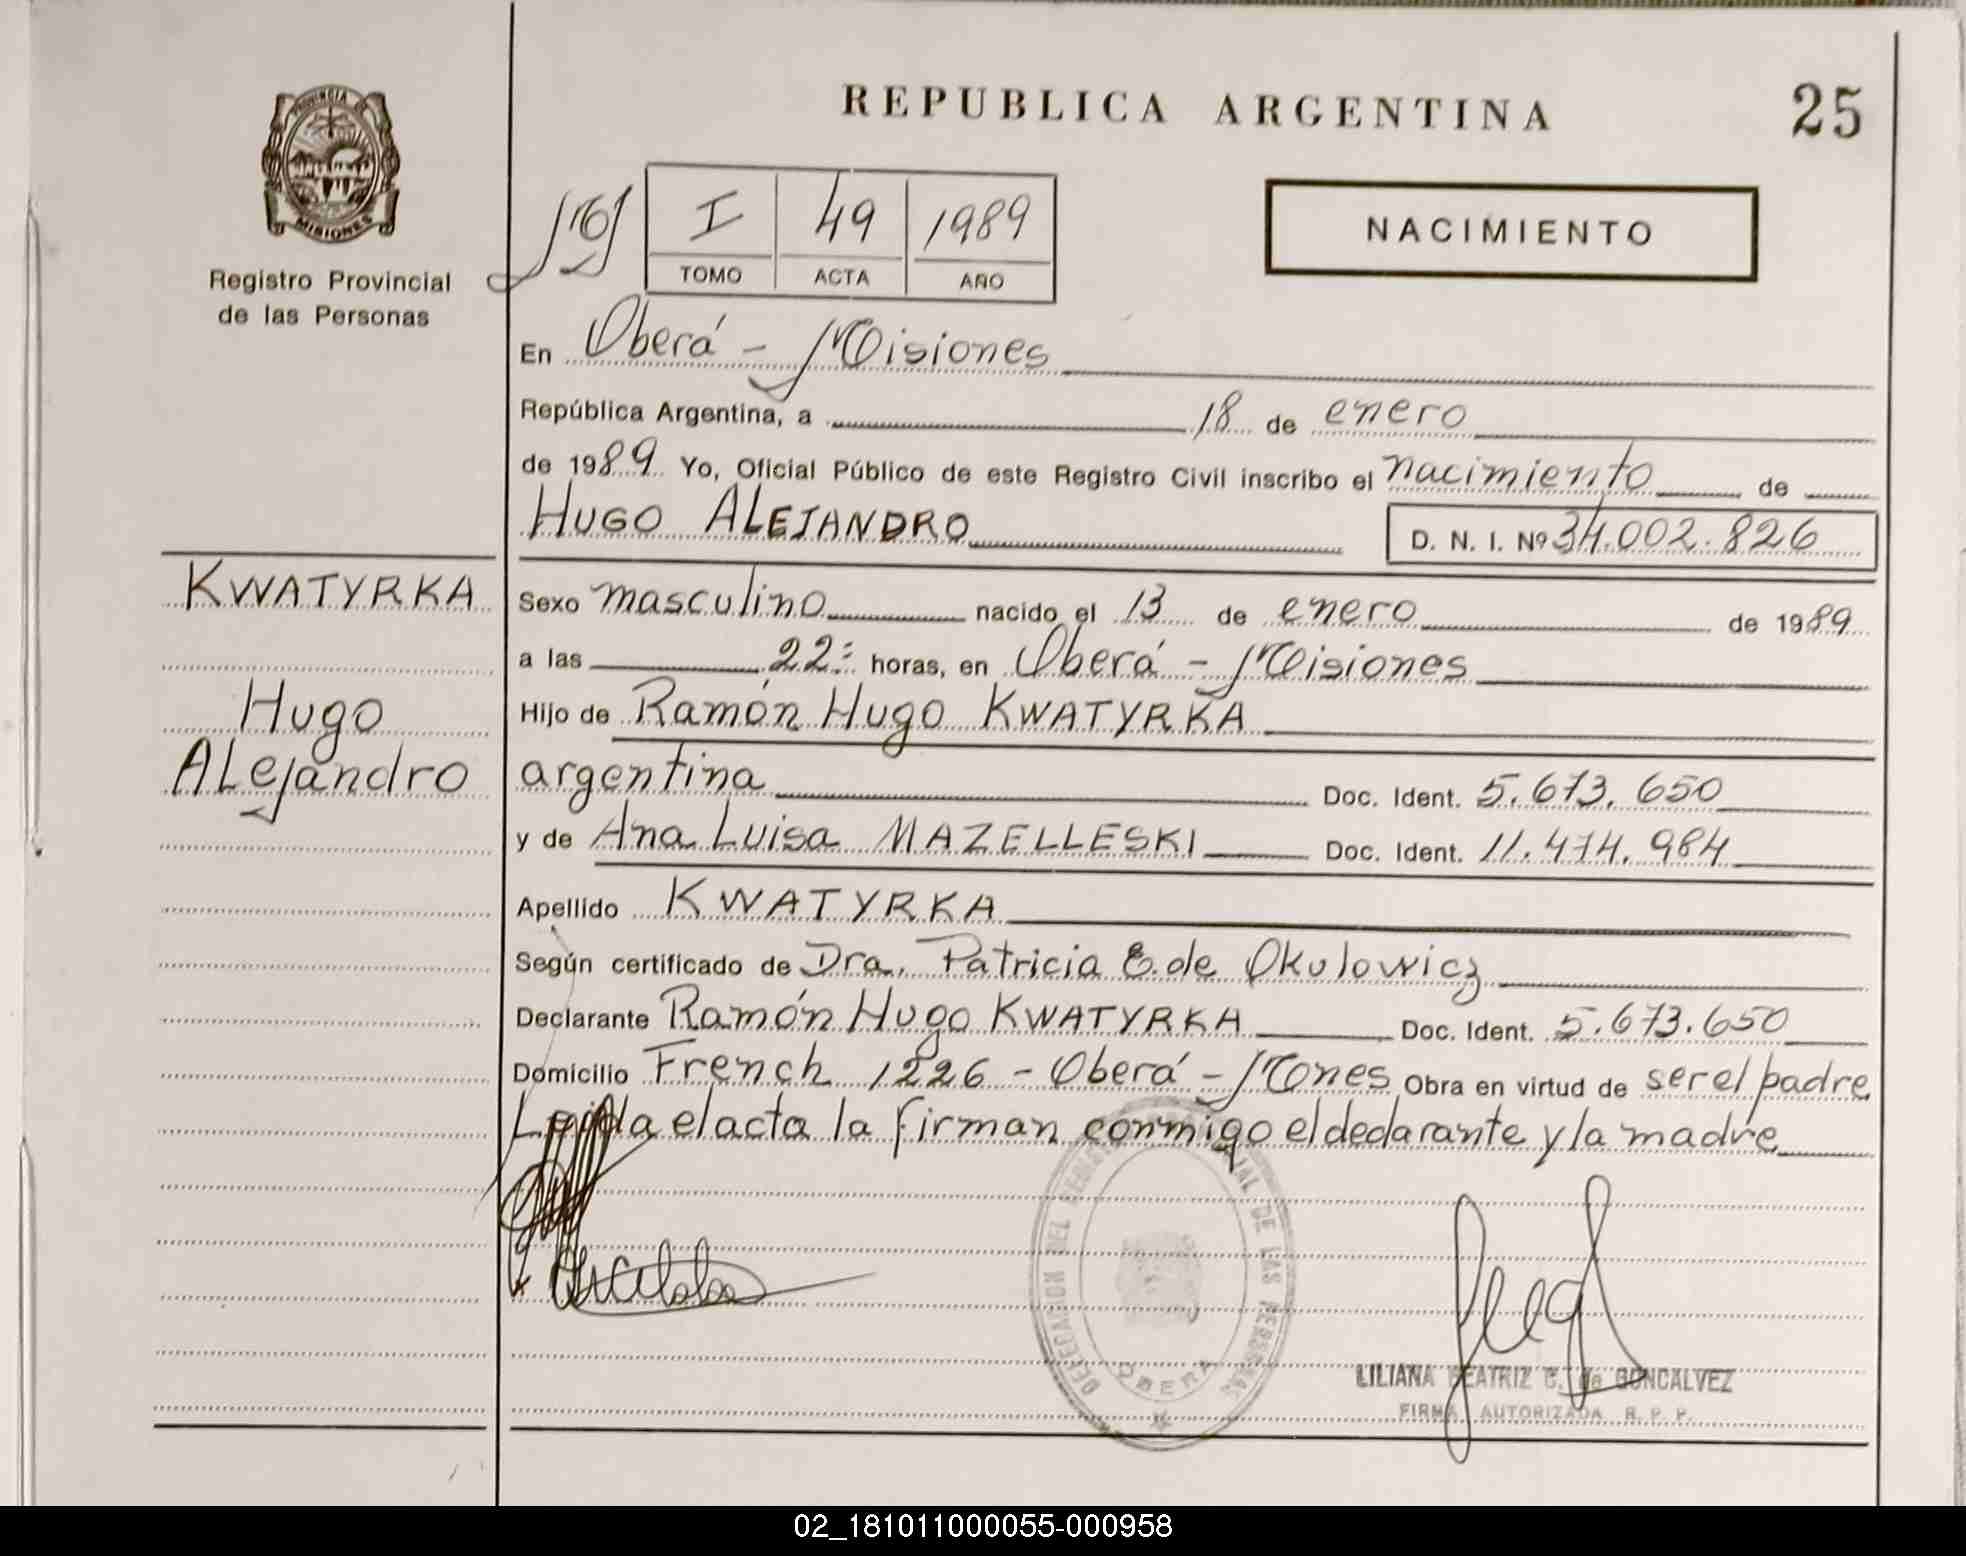 REPUBLICA ARGENTINA
25
PROVINCIA DE
MISIONES
Registro Provincial
de las Personas
I 49 1989
TOMO ACTA AÑO
NACIMIENTO
En Oberá - Misiones
República Argentina, a 18 de enero
de 1989 Yo, Oficial Público de este Registro Civil inscribo el nacimiento de
HUGO ALEJANDRO D. N. I. Nº 34.002.826
KWATYRKA
Hugo
ALejandro
Sexo masculino nacido el 13 de enero de 1989
a las 22: horas, en Oberá - Misiones
Hijo de Ramón Hugo KWATYRKA
argentina Doc. Ident. 5.673.650
y de Ana Luisa MAZELLESKI Doc. Ident. 11.474.984
Apellido KWATYRKA
Según certificado de Dra. Patricia E. de Okulowicz
Declarante Ramón Hugo KWATYRKA Doc. Ident. 5.673.650
Domicilio French 1226 - Oberá - Mones Obra en virtud de ser el padre
Leída el acta la firman conmigo el declarante y la madre
DELEGACION DEL REGISTRO PROVINCIAL DE LAS PERSONAS
OBERA
LILIANA BEATRIZ G. de GONCALVEZ
FIRMA AUTORIZADA R. P. P.
02_181011000055-000958